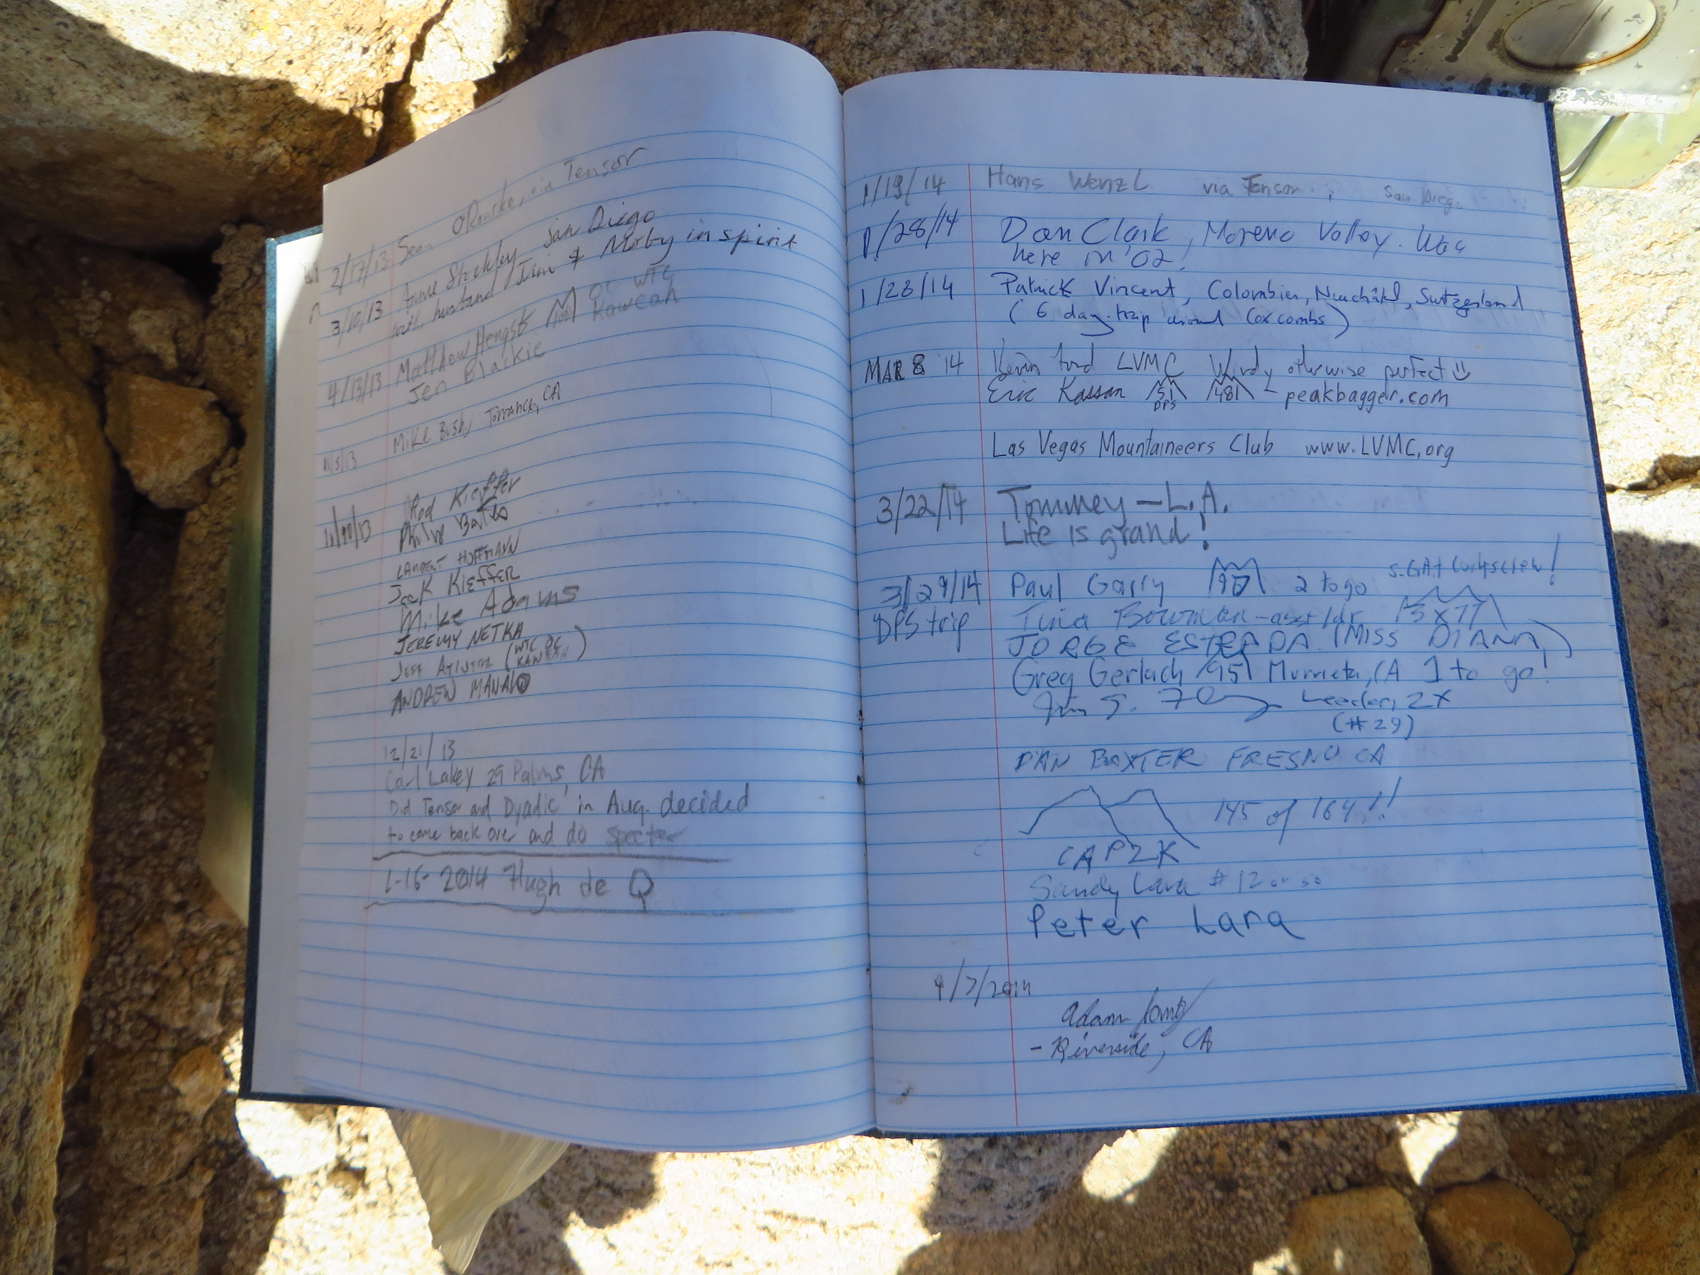 2/17/13 Sean O'Rourke, via Tensor
3/10/13 Shekley San Diego
with husband Jim & Moby in spirit
4/13/13 Matthew Hengst OC WTC
Jen Blackie Kaweah
11/5/13 Mike Bushy Torrance, CA
Rod Kieffer
Philip Bates
LAMBERT HOFFMANN
Jack Kieffer
Mike Adams
JEREMY NETKA
(WTC OC
KAWEAH)
ANDREW MANALO
12/21/13
Carl Lakey 29 Palms, CA
Did Tensor and Dyadic in Aug. decided
to come back over and do specter
1-16-2014 Hugh de Q
1/19/14 Hans Wenzl via Tensor, San Diego
1/28/14 Dan Clark, Moreno Valley. Was
here in '02.
1/28/14 Patrick Vincent, Colombier, Neuchâtel, Switzerland
(6 day-trip around Coxcombs)
MAR 8 '14 Kevin Ford LVMC Windy otherwise perfect
Eric Kassan DPS peakbagger.com
Las Vegas Mountaineers Club www.LVMC.org
3/22/14 Tommey — L.A.
Life is grand!
3/29/14 Paul Garry 90 2 to go
DPS trip Tina Bowman - asst ldr 3x77
JORGE ESTRADA (MISS DIANA)
Greg Gerlach 95 Murrieta, CA 1 to go!
Leader, 2x
(#29)
DAN BAXTER FRESNO CA
145 of 164!!
CAP2K
Sandy Lara #12 or so
Peter Lara
4/7/2014
Adam
- Riverside, CA